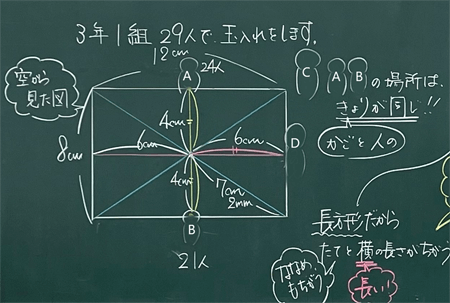 3年1組 29人で玉入れをします。
12cm
空から
見た図
A
24人
C A B の場所は、
きょりが同じ!!
かごと人の
4cm
6cm
6cm
D
8cm
4cm
7cm
2mm
B
21人
長方形だから
たてと横の長さがちがう
長い!
ななめ、
もちがう